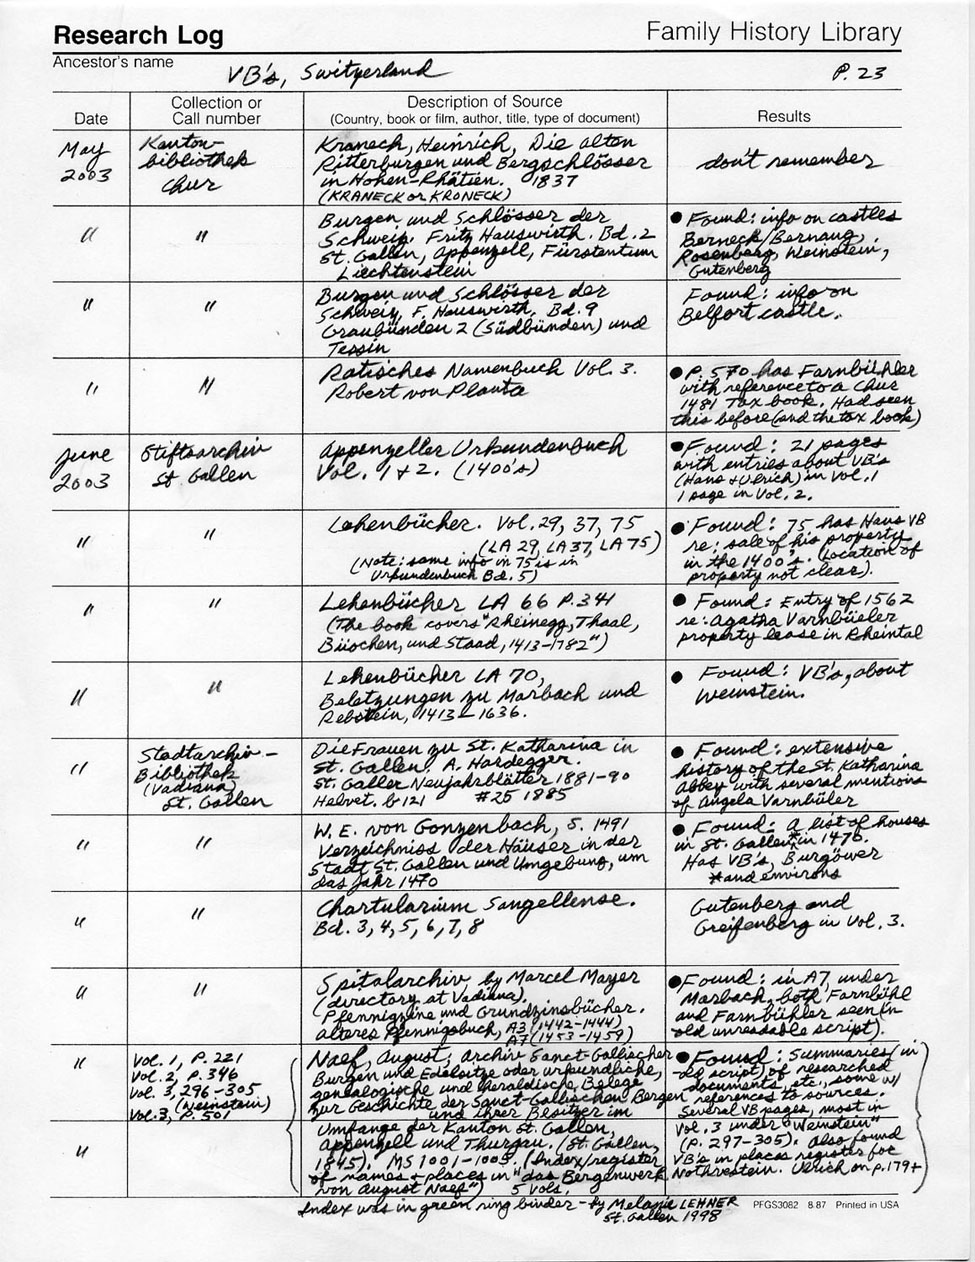 Research Log
Family History Library
Ancestor's name
VB's, Switzerland
P. 23
Date
Collection or
Call number
Description of Source
(Country, book or film, author, title, type of document)
Results
May
2003
Kanton-
bibliothek
Chur
Kraneck, Heinrich, Die alten
Ritterburgen und Bergschlösser
in Hohen-Rhätien. 1837
(KRANECK or KRONECK)
don't remember
"
"
Burgen und Schlösser der
Schweiz. Fritz Hauswirth. Bd. 2
St. Gallen, Appenzell, Fürstentum
Liechtenstein
● Found: info on castles
Berneck/Bernang,
Rosenberg, Weinstein,
Gutenberg
"
"
Burgen und Schlösser der
Schweiz, F. Hauswirth, Bd. 9
Graubünden 2 (Südbünden) und
Tessin
Found: info on
Belfort castle.
"
"
Rätisches Namenbuch Vol. 3.
Robert von Planta
● P. 570 has Farnbühler
with reference to a Chur
1481 Tax book. Had seen
this before (and the tax book)
June
2003
Stiftsarchiv
St Gallen
Appenzeller Urkundenbuch
Vol. 1 & 2. (1400's)
● Found: 21 pages
with entries about VB's
(Hans & Ulrich) in Vol. 1
1 page in Vol. 2.
"
"
Lehenbücher. Vol. 29, 37, 75
(LA 29, LA 37, LA 75)
(Note: same info in 75 is in
Urkundenbuch Bd. 5)
● Found: 75 has Hans VB
re: sale of his property
in the 1400's. (Location of
property not clear).
"
"
Lehenbücher LA 66 P. 341
(The book covers "Rheinegg, Thaal,
Büochen, und Staad, 1413-1782")
● Found: Entry of 1562
re: Agatha Varnbüeler
property lease in Rheintal
"
"
Lehenbücher LA 70,
Beletzungen zu Marbach und
Rebstein, 1413-1636.
● Found: VB's, about
Weinstein.
"
Stadtarchiv -
Bibliothek
(Vadiana)
St. Gallen
Die Frauen zu St. Katharina in
St. Gallen. A. Hardegger.
St. Galler Neujahrblätter 1881-90
Helvet. b 121 #25 1885
● Found: extensive
history of the St. Katharina
Abbey with several mentions
of Angela Varnbüler
"
"
W. E. von Gonzenbach, S. 1491
Verzeichniss der Häuser in der
Stadt St. Gallen und Umgebung, um
das Jahr 1470
● Found: A list of houses
in St. Gallen* in 1470.
Has VB's, Burgower
* and environs
"
"
Chartularium Sangellense.
Bd. 3, 4, 5, 6, 7, 8
Gutenberg and
Greifenberg in Vol. 3.
"
"
Spitalarchiv, by Marcel Mayer
(directory at Vadiana).
Pfennigzine und Grundzinsbücher.
älteres Pfennigbuch, A3 (1442-1444)
A7 (1453-1459)
● Found: in A7, under
Marbach, both Farnbühl
and Farnbühler seen (in
old unreadable script).
"
Vol. 1, P. 221
Vol. 2, P. 346
Vol. 3, 296-305
(Weinstein)
Vol. 3, P. 501
Naef, August, Archiv Sanct-Gallischer
Burgen und Edelsitze oder urfundliche,
genealogische und heraldische, Belege
zur Geschichte der Sanct-Gallischen Bergen
und ihrer Besitzer im
● Found: Summaries (in
old script) of researched
documents, etc., some w/
references to sources.
Several VB pages, most in
"
Umfange der Kanton St. Gallen,
Appenzell und Thurgau. (St. Gallen,
1845). MS 1001-1005 (Index/register
of names & places in "das Bergenwerk
von August Naef") 5 Vols.
Vol. 3 under "Weinstein"
(P. 297-305). Also found
VB's in places register for
Nothvestein. Ulrich on p. 179+
Index was in green ring binder - by Melanie LEHNER
St. Gallen 1998
PFGS3082 8 87 Printed in USA